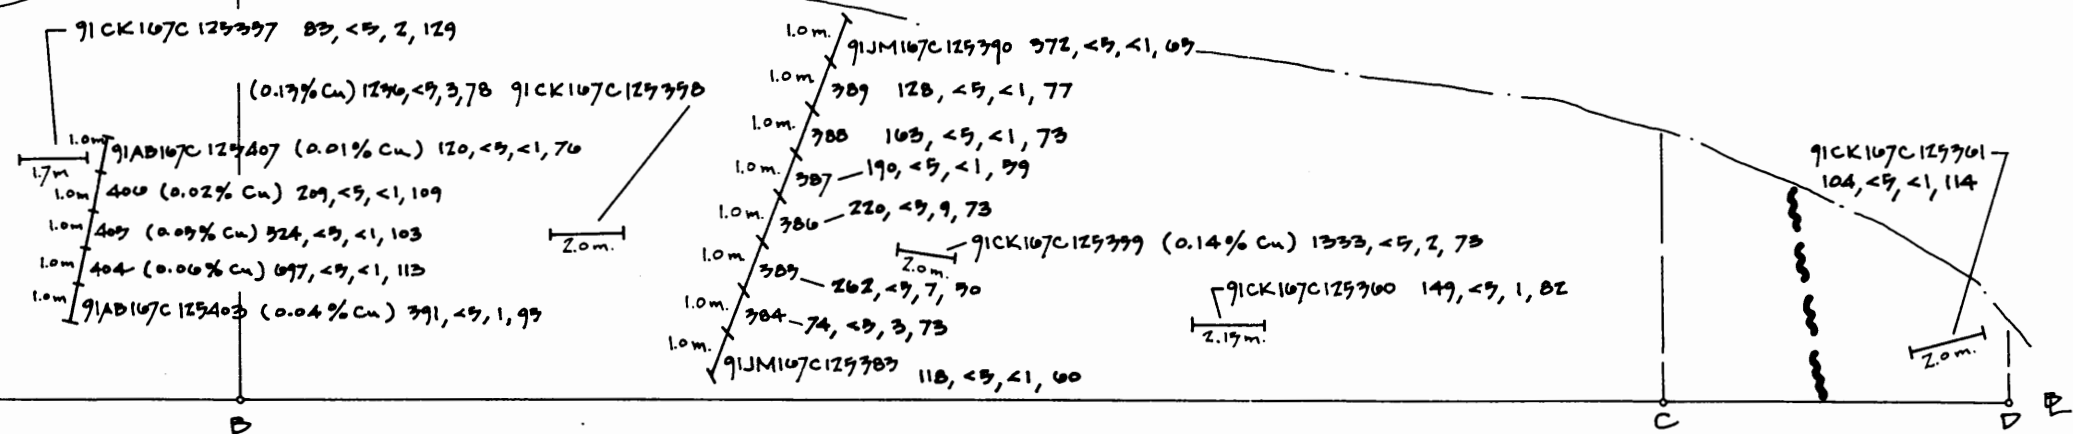 91CK167C125357 83, <5, 2, 129
(0.13% Cu) 1236, <5, 3, 78 91CK167C125358
1.0m
91AB167C125407 (0.01% Cu) 120, <5, <1, 76
1.7m
1.0m 406 (0.02% Cu) 209, <5, <1, 109
1.0m 405 (0.05% Cu) 524, <5, <1, 103
1.0m 404 (0.06% Cu) 697, <5, <1, 113
1.0m 91AB167C125403 (0.04% Cu) 391, <5, 1, 95
2.0m.
1.0m.
91JM167C125390 372, <5, <1, 65
1.0m 389 128, <5, <1, 77
1.0m. 388 163, <5, <1, 73
1.0m. 387 190, <5, <1, 59
1.0m. 386 220, <5, 9, 73
1.0m. 385 262, <5, 7, 50
1.0m. 384 74, <5, 3, 73
1.0m. 91JM167C125383 118, <5, <1, 60
91CK167C125359 (0.14% Cu) 1333, <5, 2, 75
2.0m.
91CK167C125360 149, <5, 1, 82
2.15m.
91CK167C125361
104, <5, <1, 114
2.0m.
B
C
D